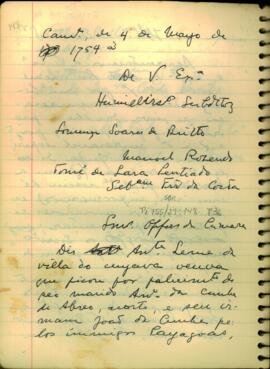 Cam.ª, de 4 de Mayo de
1754 ã
De V. Ex.ª
Humildes Subditos
Lourenço Soares de Britto
Manuel Rozendo
Tomé de Lara Penteado
Seb.am Frz da Costa
Snr.s Offes da Camara
Dis Ant.ª Leme da
villa do cuyava veuva
que ficou por falesimento de
seo marido Ant.º da Cunha
de Abreo, morto, e seu ir-
mam João da Cunha pe-
los inimigos Payagoas,